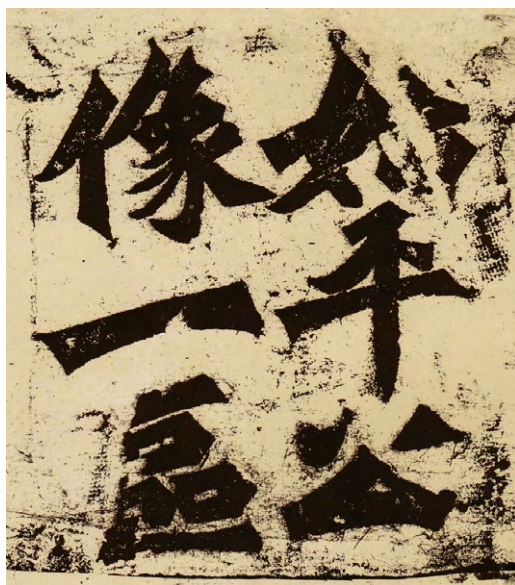 始平公
像一區